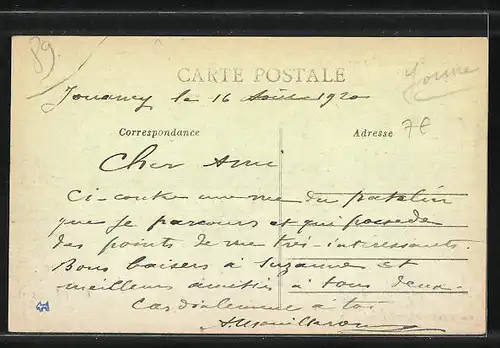 89
CARTE POSTALE
Yonne
Jouancy le 16 Août 1920
Correspondance
Adresse
7€
Cher Ami
Ci-contre une vue du patelin
que je parcours et qui possede
des points de vue tres-interessants.
Bons baisers à Suzanne et
meilleurs amitiés à tous deux.
Cordialement à toi